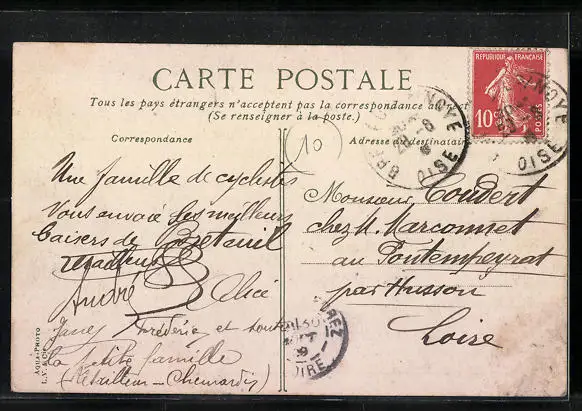 CARTE POSTALE
Tous les pays étrangers n'acceptent pas la correspondance au recto
(Se renseigner à la poste.)
Correspondance
Adresse du destinataire
10
REPUBLIQUE FRANÇAISE
10
POSTES
OISE
OISE
Une famille de cyclistes
vous envoie ses meilleurs
baisers de Breteuil
André
Alice
Frédéric et toute
la petite famille
Monsieur Coudert
chez M. Marconnet
au Pontempeyrat
par Husson
Loire
AQUA-PHOTO